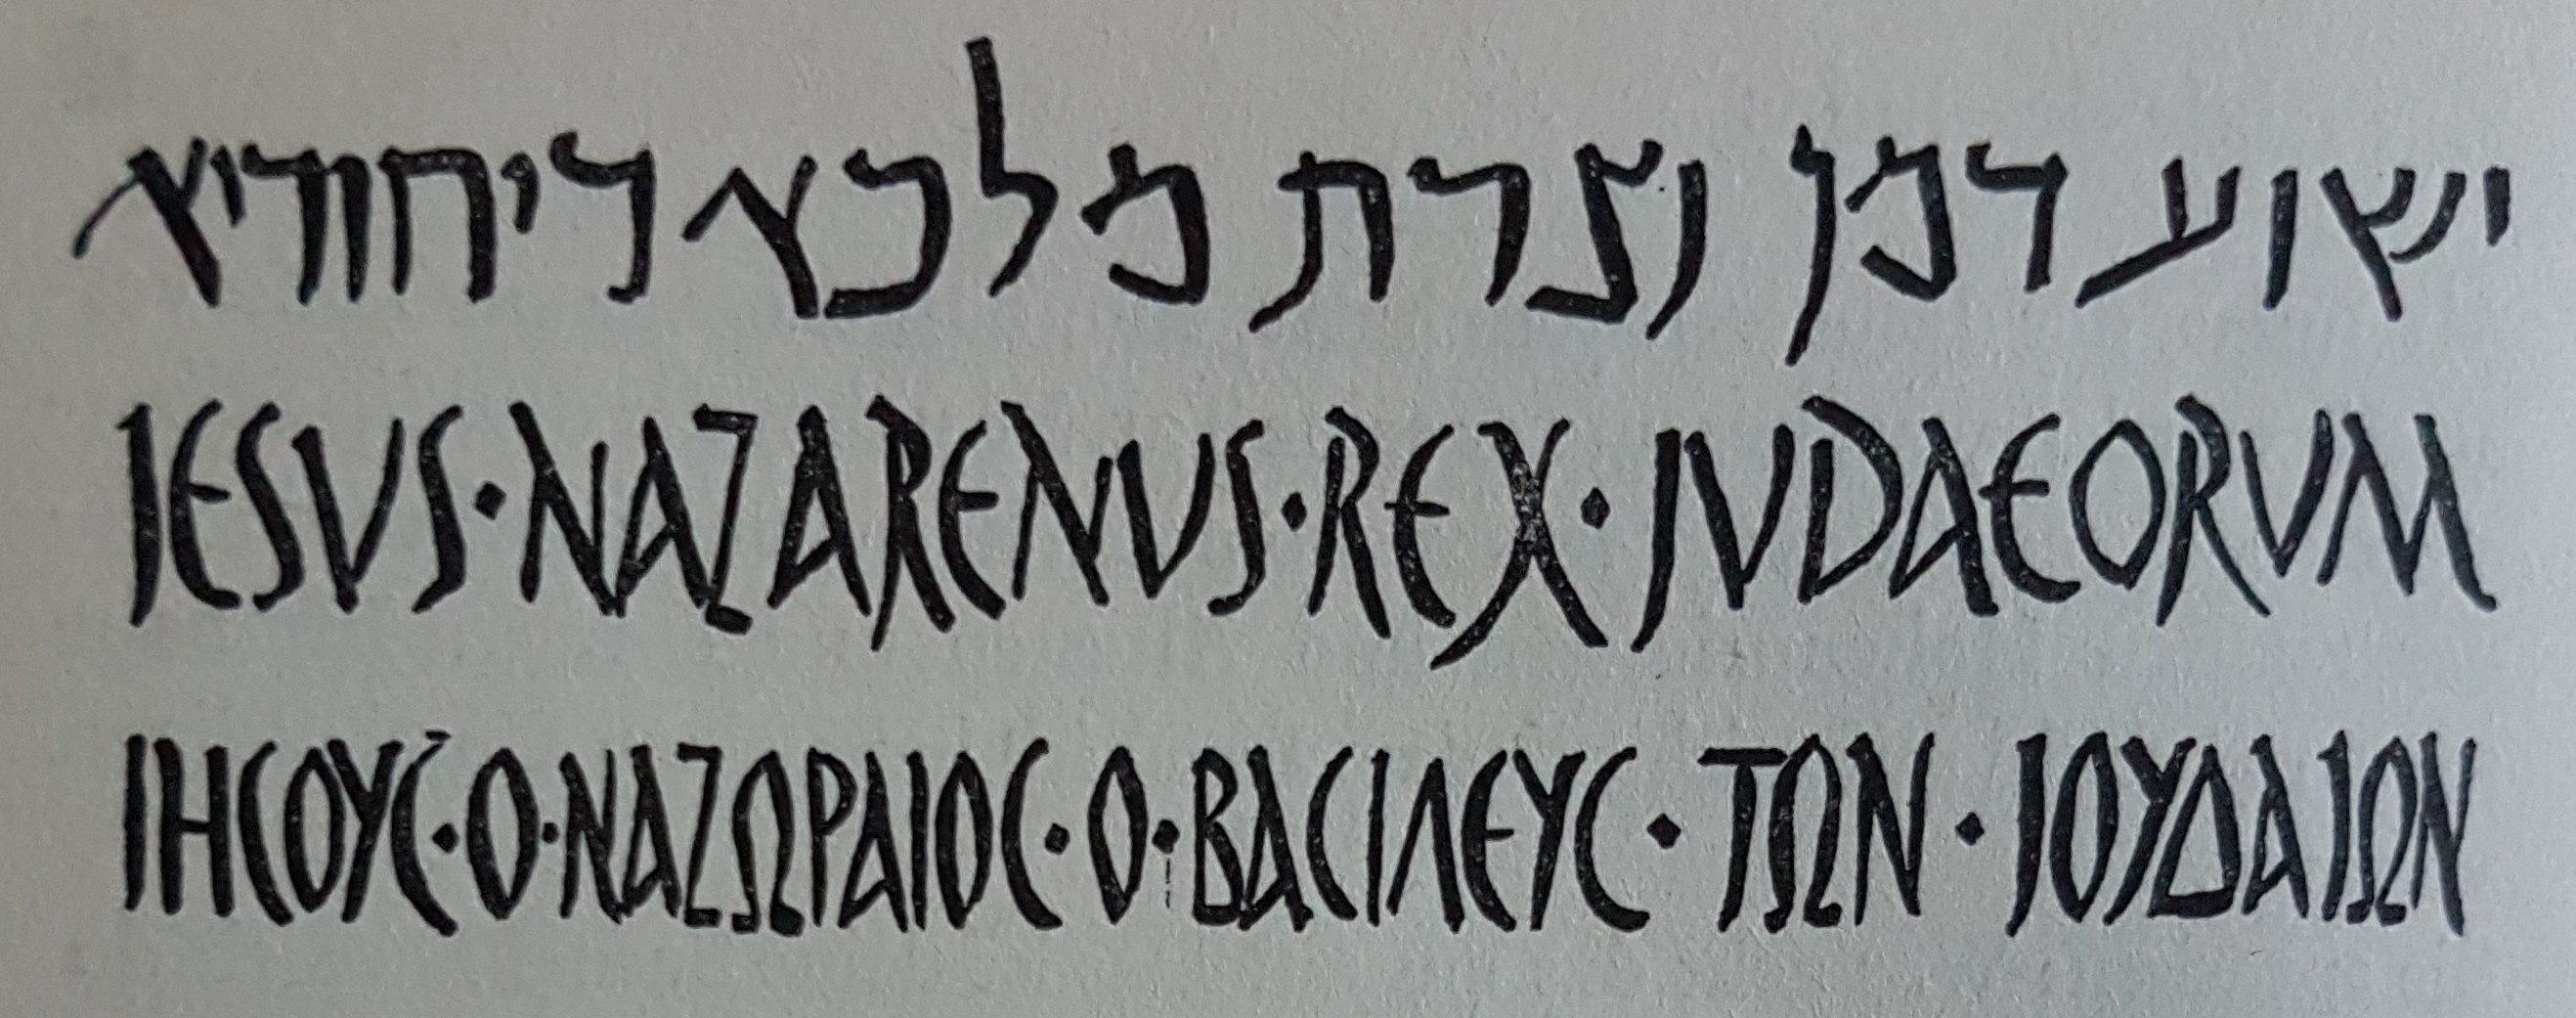 ישוע דמן נצרת מלכא דיהודיא
JESUS·NAZARENUS·REX·JUDAEORUM
ΙΗCΟΥC·Ο·ΝΑΖΩΡΑΙΟC·Ο·ΒΑCΙΛΕΥC·ΤΩΝ·ΙΟΥΔΑΙΩΝ